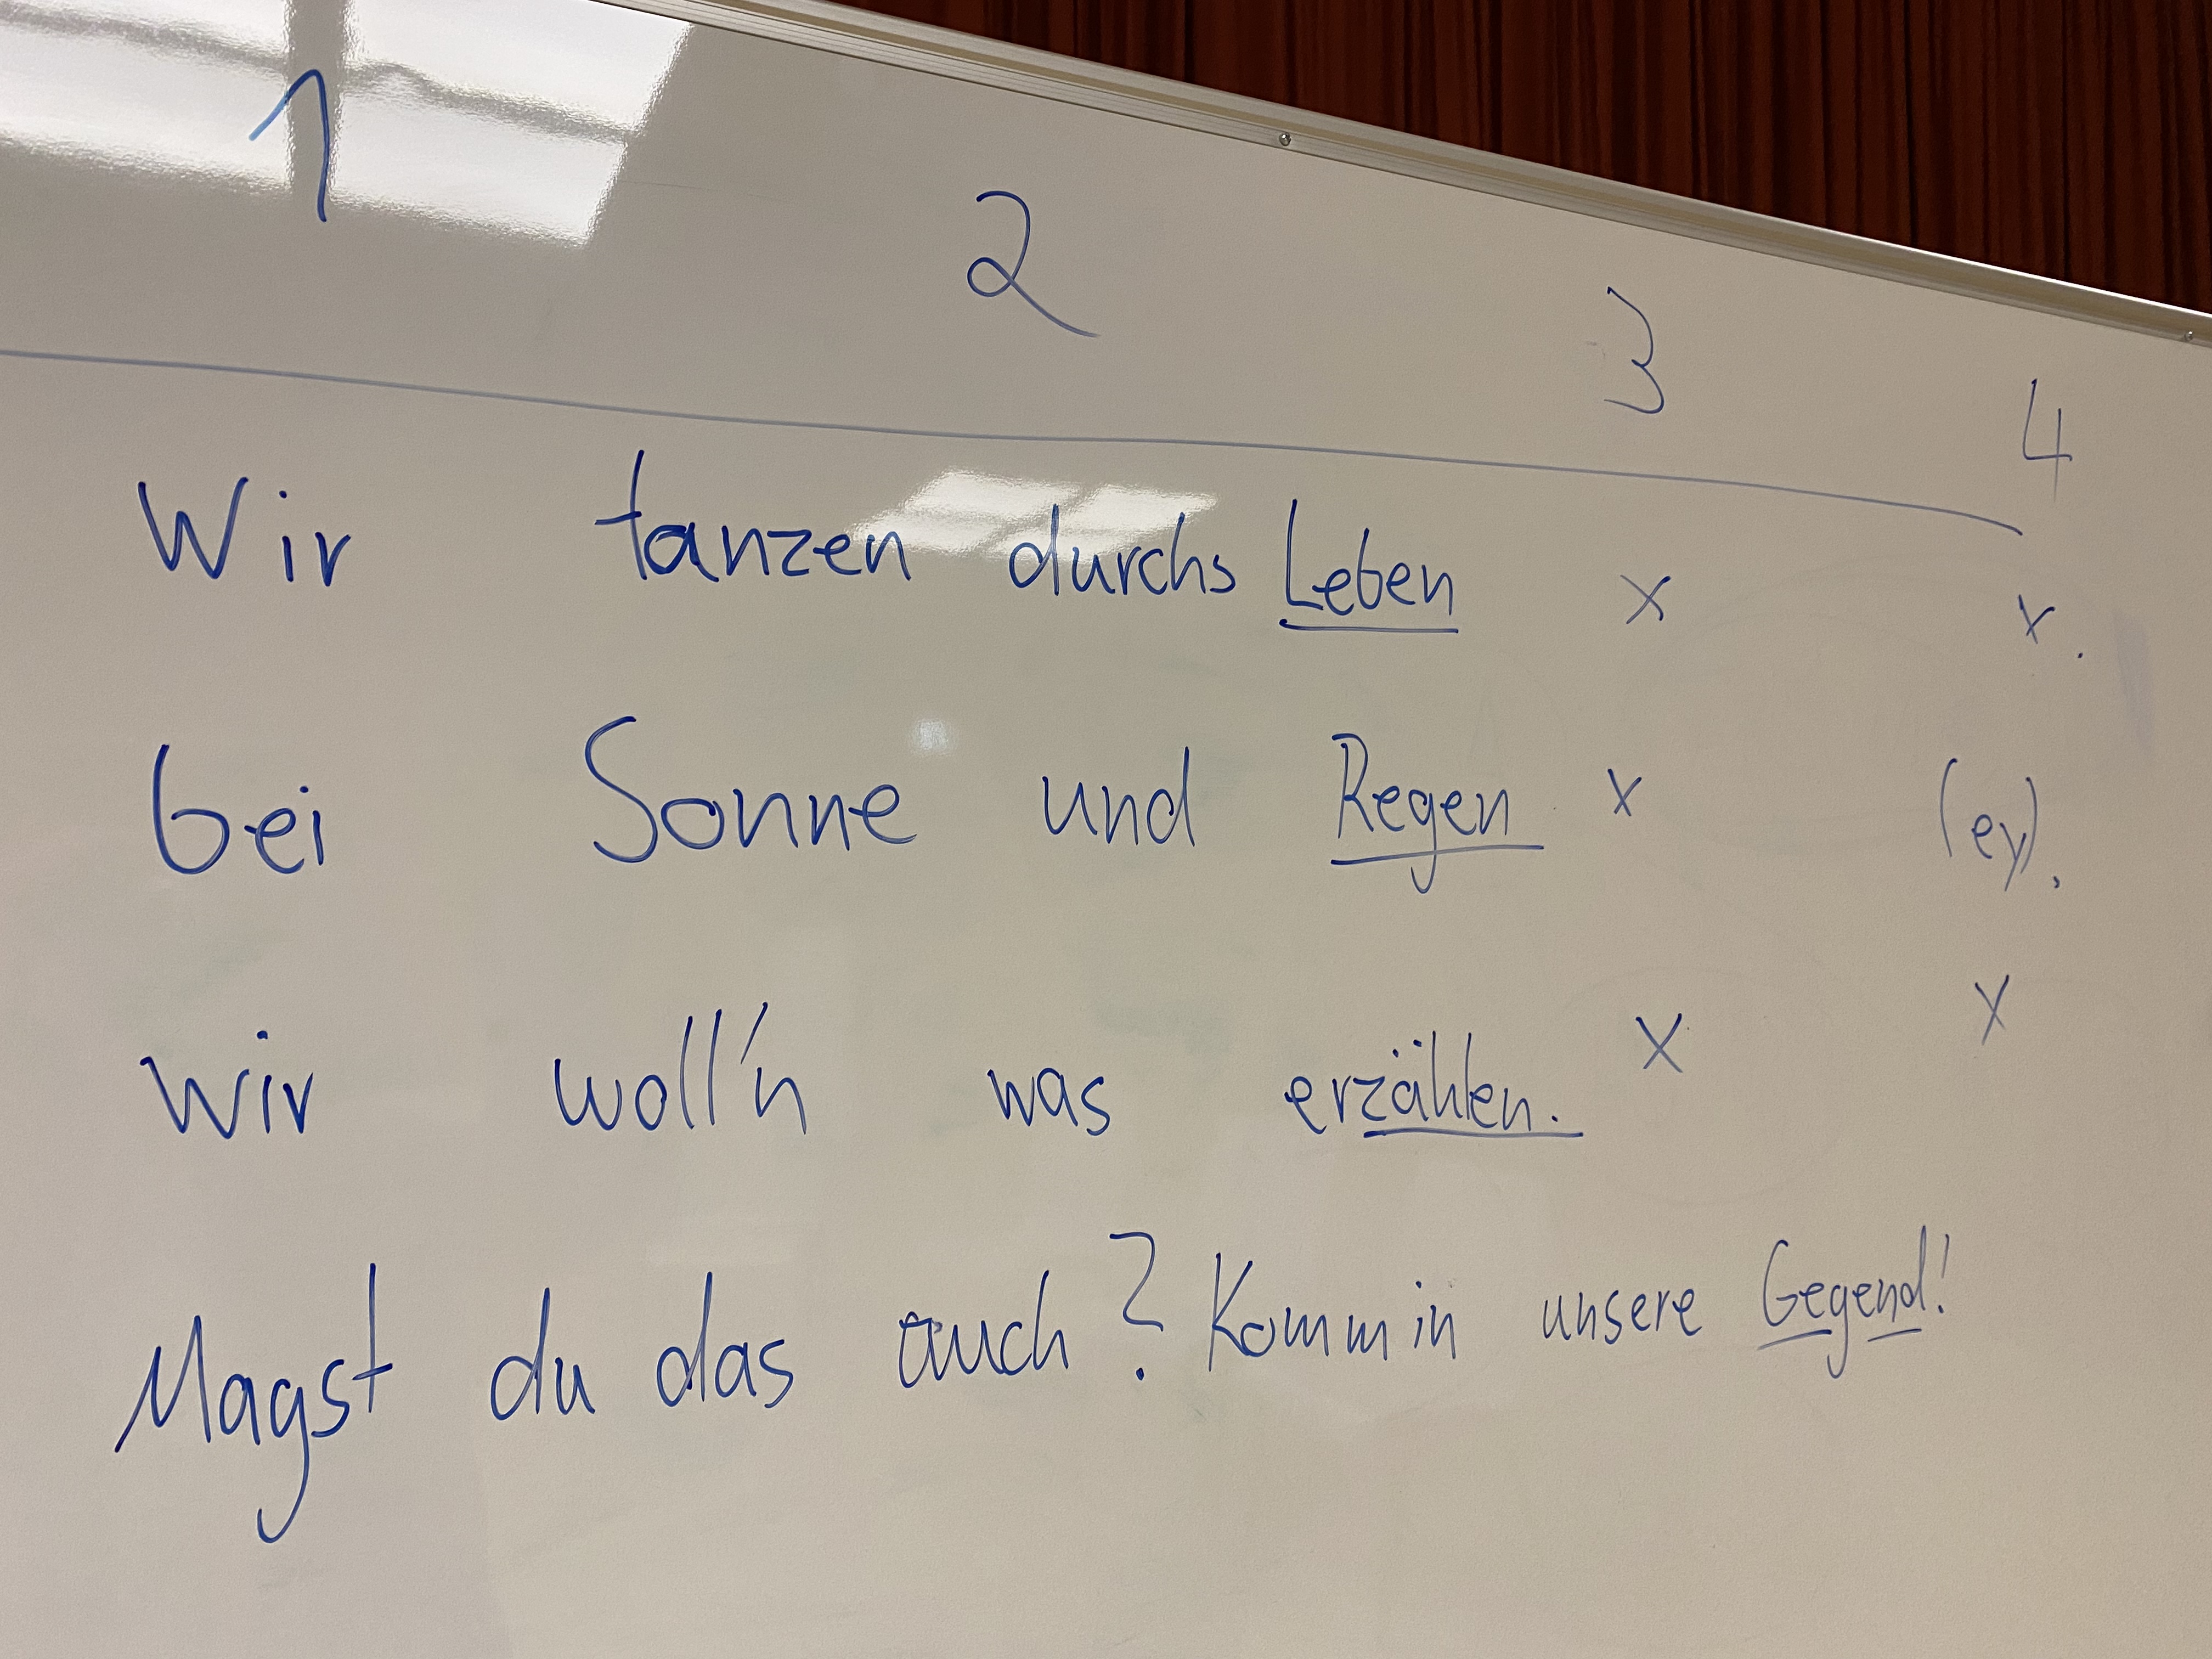 1 2 3 4
Wir tanzen durchs Leben x x.
bei Sonne und Regen x (ey).
wir woll'n was erzählen. x x
Magst du das auch? Komm in unsere Gegend!